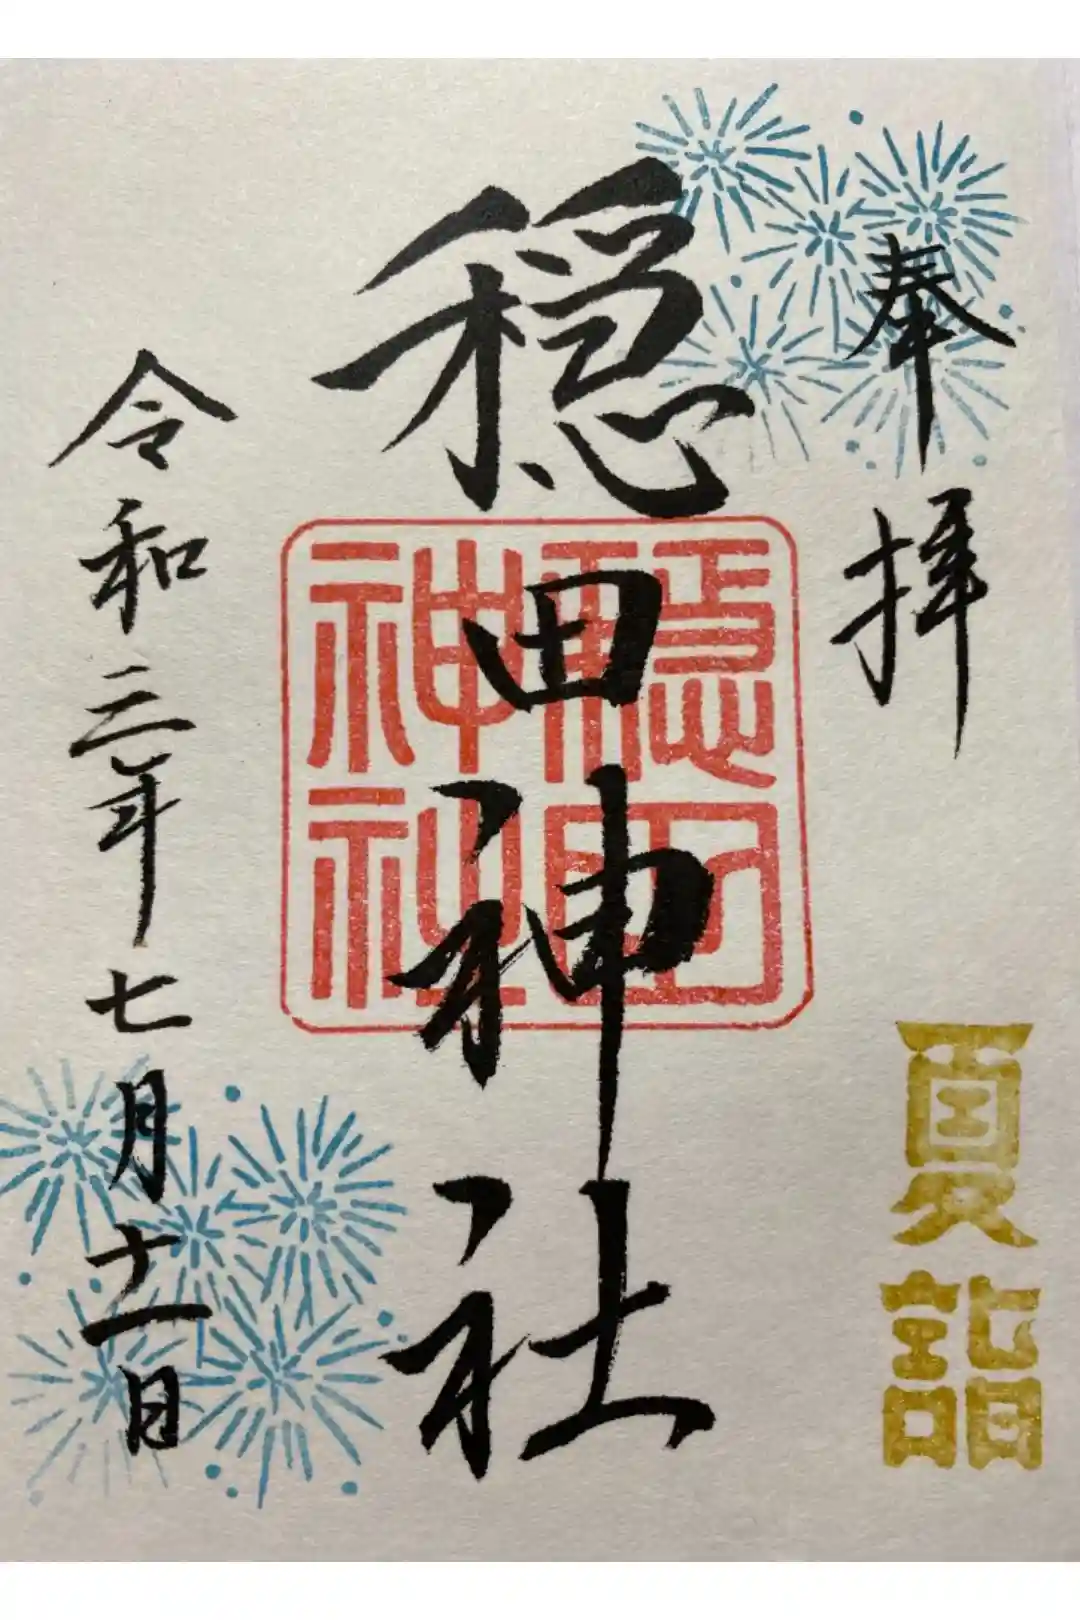 奉拝
夏詣
穏田神社
穏田
神社
令和三年七月十一日